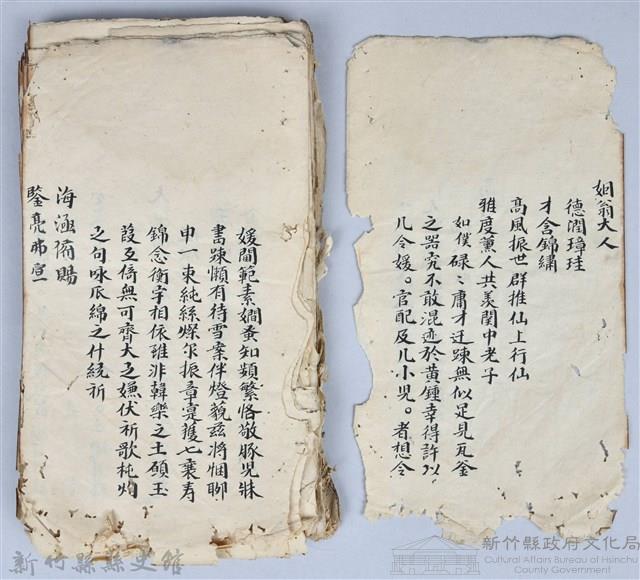 姻翁大人
德潤璋珪
才含錦繡
高風振世群推仙上行仙
雅度薰人共羡閔中老子
如僕碌々庸才迂踈無似足見瓦釜
之器究不敢混迹於黃鍾幸得許以
几令媛。官配及几小兒。者想令
媛閫範素嫺蚤知蘋繁恪敬豚児牀
書踈懶有待雪案伴燈藐茲將悃聊
申一束純絲燦尓振章寔獲七襄寿
錦念衡宇相依雖非韓樂之土顧玉
葭互倚無可齊大之嫌伏祈歌桃灼
之句咏瓜綿之什統祈
海涵俻賜
鑒亮弗宣
新竹縣縣史館
新竹縣政府文化局
Cultural Affairs Bureau of Hsinchu
County Government